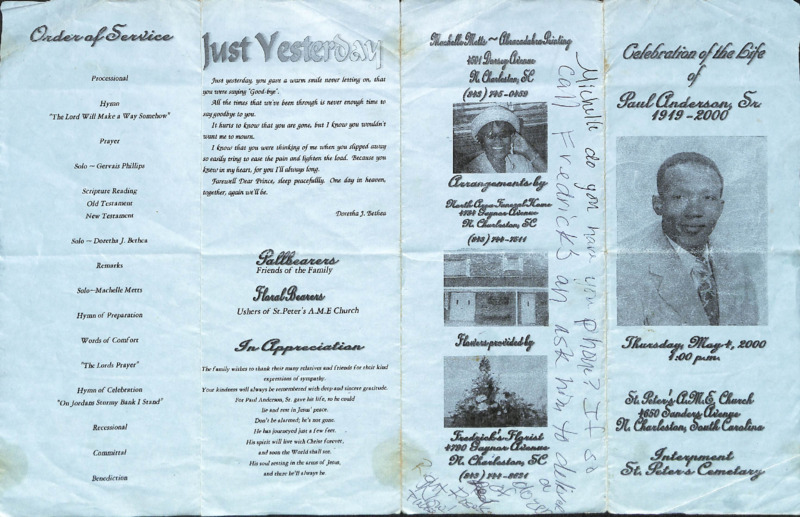 Order of Service
Processional
Hymn
"The Lord Will Make a Way Somehow"
Prayer
Solo - Gervais Phillips
Scripture Reading
Old Testament
New Testament
Solo - Doretha J. Bethea
Remarks
Solo-Machelle Metts
Hymn of Preparation
Words of Comfort
"The Lords Prayer"
Hymn of Celebration
"On Jordans Stormy Bank I Stand"
Recessional
Committal
Benediction
Just Yesterday
Just yesterday, you gave a warm smile never letting on, that
you were saying "Good-bye".
All the times that we've been through is never enough time to
say goodbye to you.
It hurts to know that you are gone, but I know you wouldn't
want me to mourn.
I know that you were thinking of me when you slipped away
so easily tring to ease the pain and lighten the load. Because you
knew in my heart, for you I'll always long.
Farewell Dear Prince, sleep peacefully. One day in heaven,
together, again we'll be.
Doretha J. Bethea
Pallbearers
Friends of the Family
Floral Bearers
Ushers of St.Peter's A.M.E Church
In Appreciation
The family wishes to thank their many relatives and friends for their kind
expressions of sympathy.
Your kindness will always be remembered with deep and sincere gratitude.
For Paul Anderson, Sr. gave his life, so he could
lie and rest in Jesus' peace.
Don't be alarmed; he's not gone.
He has journeyed just a few feet.
His spirit will live with Christ forever,
and soon the World shall see.
His soul resting in the arms of Jesus,
and there he'll always be.
Machelle Metts ~ Abracadabra Printing
4501 Dorsey Avenue
N. Charleston, SC
(843) 745-0459
Arrangements by
North Area Funeral Home
4784 Gaynor Avenue
N. Charleston, SC
(843) 744-
Flowers provided by
Fredrick's Florist
4780 Gaynor Avenue
N. Charleston, SC
(843) 744-
Michelle do you have phone? If so
Call Fredricks an ask him to
Celebration of the Life
of
Paul Anderson, Sr.
1919-2000
Thursday, May 4, 2000
1:00 p.m.
St. Peter's A.M.E. Church
4650 Sanders Avenue
N. Charleston, South Carolina
Interpment
St. Peter's Cemetary